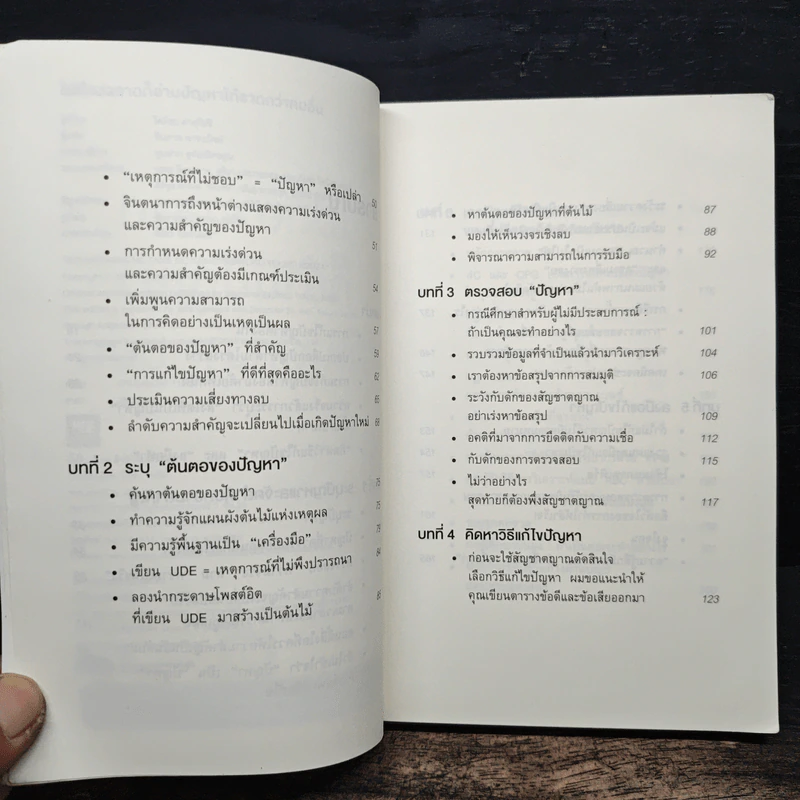 • “เหตุการณ์ที่ไม่ชอบ” = “ปัญหา” หรือเปล่า 50
• จินตนาการถึงหน้าต่างแสดงความเร่งด่วน
และความสำคัญของปัญหา 51
• การกำหนดความเร่งด่วน
และความสำคัญต้องมีเกณฑ์ประเมิน 54
• เพิ่มพูนความสามารถ
ในการคิดอย่างเป็นเหตุเป็นผล 57
• “ต้นตอของปัญหา” ที่สำคัญ 59
• “การแก้ไขปัญหา” ที่ดีที่สุดคืออะไร 62
• ประเมินความเสี่ยงทางลบ 65
• ลำดับความสำคัญจะเปลี่ยนไปเมื่อเกิดปัญหาใหม่ 69
บทที่ 2 ระบุ “ต้นตอของปัญหา”
• ค้นหาต้นตอของปัญหา 75
• ทำความรู้จักแผนผังต้นไม้แห่งเหตุผล 75
• มีความรู้พื้นฐานเป็น “เครื่องมือ” 79
• เขียน UDE = เหตุการณ์ที่ไม่พึงปรารถนา 84
• ลองนำกระดาษโพสต์อิต 85
ที่เขียน UDE มาสร้างเป็นต้นไม้
• หาต้นตอของปัญหาที่ต้นไม้ 87
• มองให้เห็นวงจรเชิงลบ 88
• พิจารณาความสามารถในการรับมือ 92
บทที่ 3 ตรวจสอบ “ปัญหา”
• กรณีศึกษาสำหรับผู้ไม่มีประสบการณ์ :
ถ้าเป็นคุณจะทำอย่างไร 101
• รวบรวมข้อมูลที่จำเป็นแล้วนำมาวิเคราะห์ 104
• เราต้องหาข้อสรุปจากการสมมุติ 106
• ระวังกับดักของสัญชาตญาณ
อย่าเร่งหาข้อสรุป 109
• อคติที่มาจากการยึดติดกับความเชื่อ 112
• กับดักของการตรวจสอบ 115
• ไม่ว่าอย่างไร
สุดท้ายก็ต้องพึ่งสัญชาตญาณ 117
บทที่ 4 คิดหาวิธีแก้ไขปัญหา
• ก่อนจะใช้สัญชาตญาณตัดสินใจ
เลือกวิธีแก้ไขปัญหา ผมขอแนะนำให้
คุณเขียนตารางข้อดีและข้อเสียออกมา 123